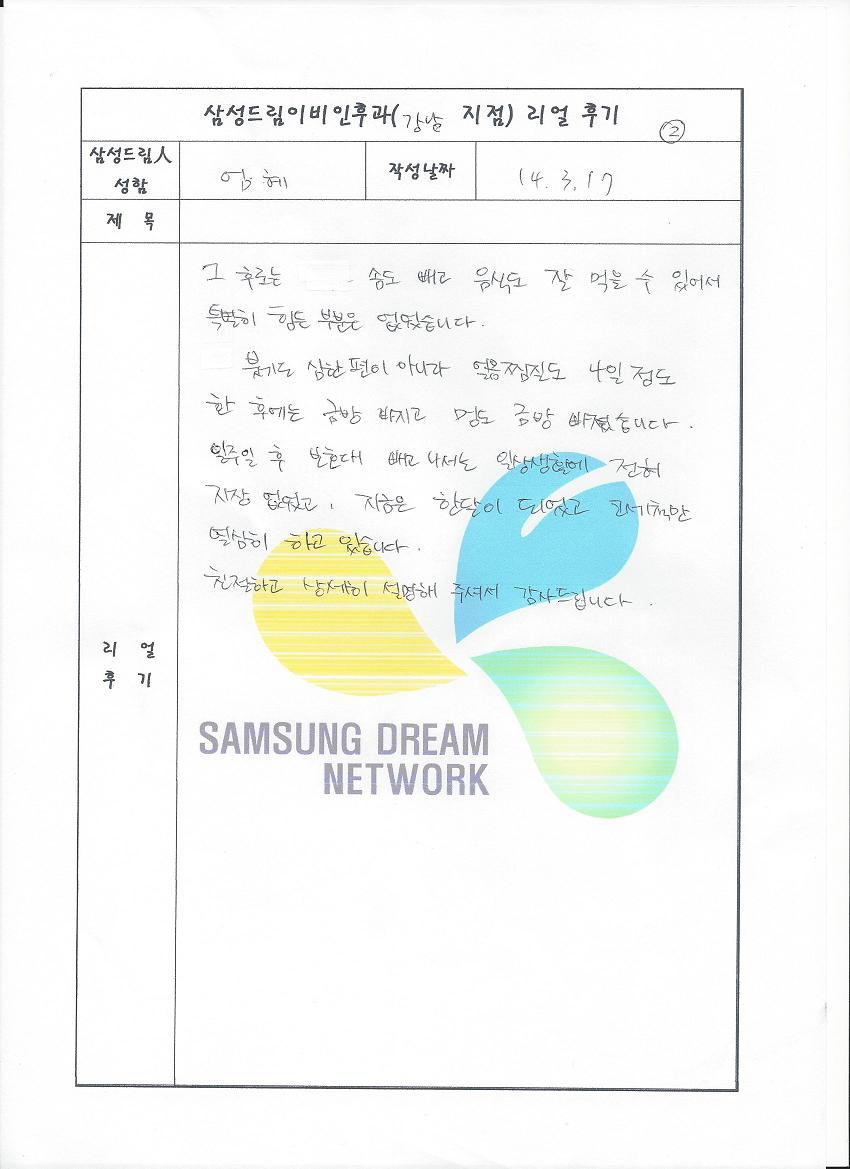 삼성드림이비인후과(강남 지점) 리얼 후기
②
삼성드림人 성함
엄혜
작성날짜
14. 3. 17
제 목
그 후로는 솜도 빼고 음식도 잘 먹을 수 있어서
특별히 힘든 부분은 없었습니다.
붓기도 심한 편이 아니라 얼음찜질도 4일 정도
한 후에는 금방 빠지고 멍도 금방 빠졌습니다.
일주일 후 보호대 빼고 나서는 일상생활에 전혀
지장 없었고, 지금은 한달이 되었고 코세척만
열심히 하고 있습니다.
친절하고 상세히 설명해 주셔서 감사드립니다.
리 얼
후 기
SAMSUNG DREAM
NETWORK